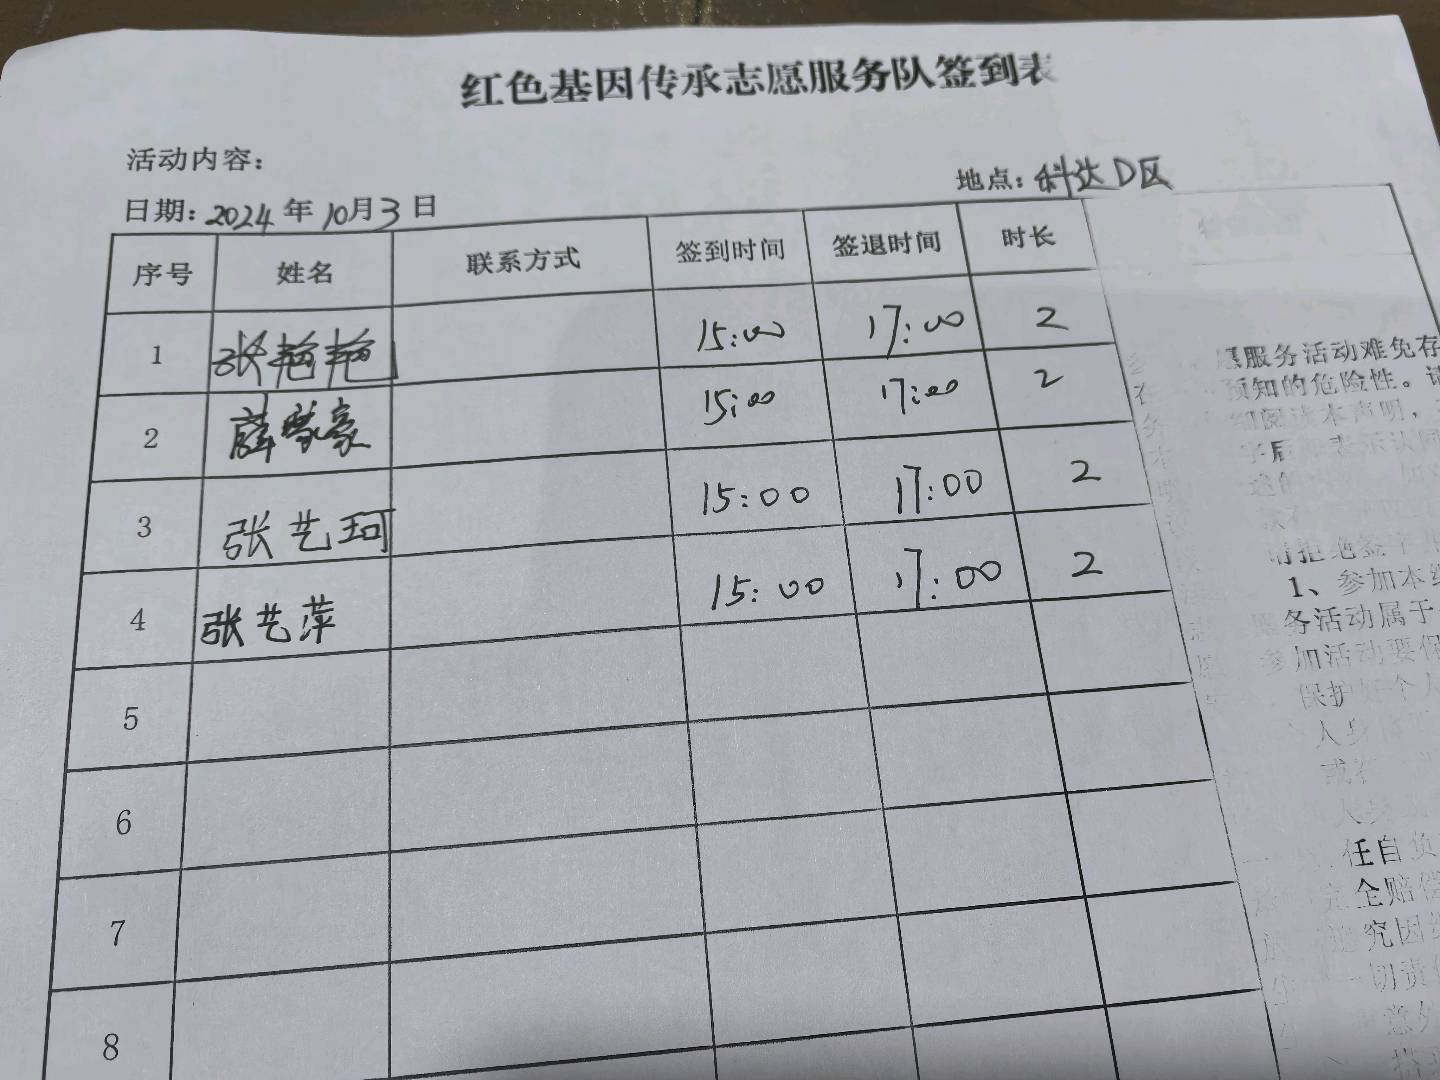 红色基因传承志愿服务队签到表
活动内容：
地点：科达D区
日期：2024年10月3日
序号 姓名 联系方式 签到时间 签退时间 时长
1 张艳艳 15:00 17:00 2
2 薛豪 15:00 17:00 2
3 张艺珂 15:00 17:00 2
4 张艺萍 15:00 17:00 2
5
6
7
8
愿服务活动难免存
预知的危险性。请
细阅读本声明，
字后 表示认同
请拒绝签字
1、参加本
务活动属于
参加活动要保
保护 个人
人身
或
人身
任自负
全赔偿
究因
一切责任
意外